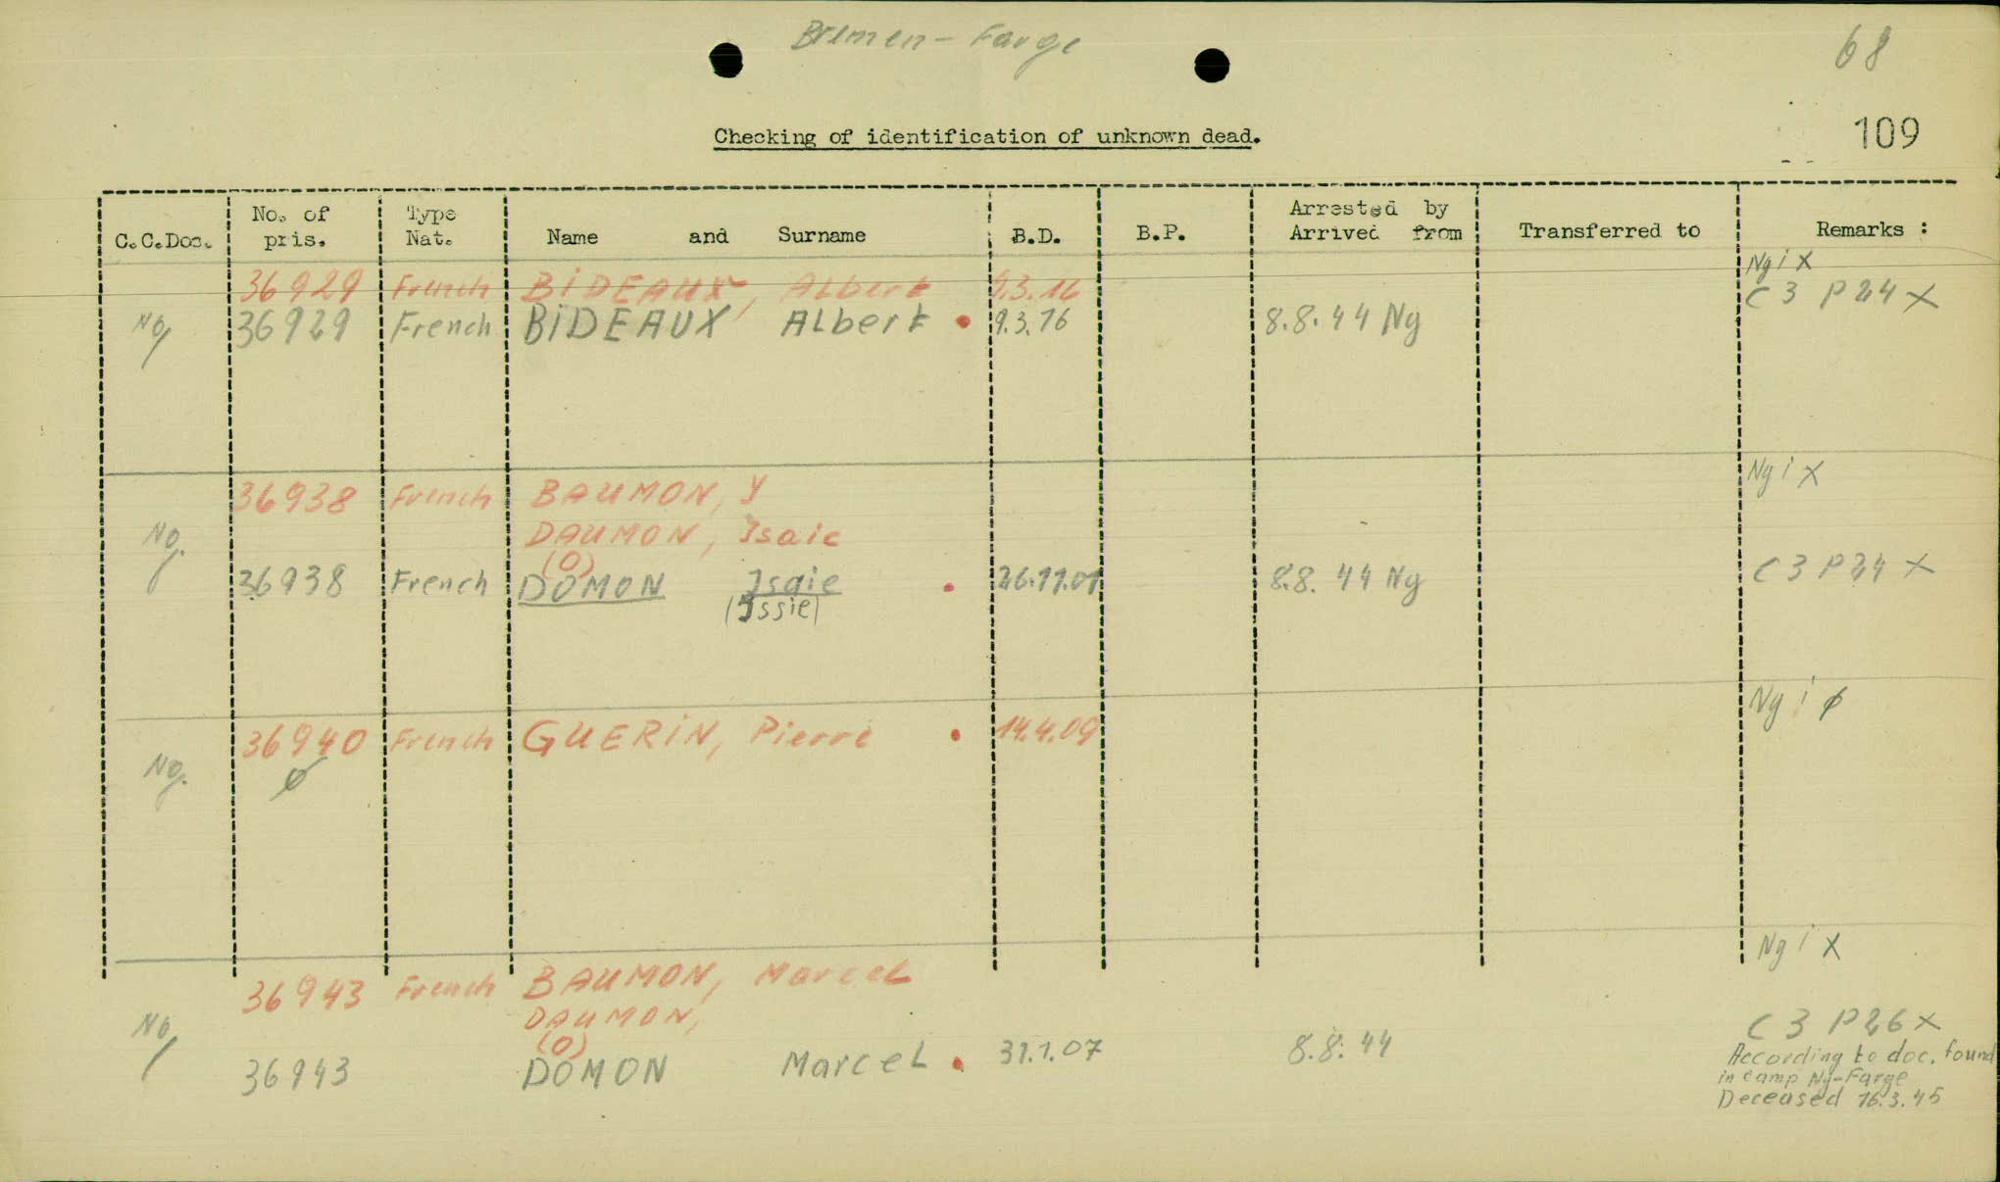 Bremen-Farge
68
109
Checking of identification of unknown dead.
C.C.Doc. No. of pris. Type Nat. Name and Surname B.D. B.P. Arrested by Arrived from Transferred to Remarks :
Ng i X
36929 French BIDEAUX, Albert 9.3.16
C 3 P 24 X
Ng 36929 French BIDEAUX Albert • 9.3.16 8.8.44 Ng
Ng i X
36938 French BAUMON, Y
Ng. DAUMON, Isaie
(O)
36938 French DOMON Isaie • 26.11.01 8.8.44 Ng C 3 P24 X
(Issie)
Ng i ø
36940 French GUERIN, Pierre • 14.4.09
Ng. ø
Ng i X
36943 French BAUMON, Marcel
Ng DAUMON,
C 3 P26 X
(O)
36943 DOMON Marcel • 31.1.07 8.8.44
According to doc. found
in camp Ng-Farge
Deceased 16.3.45